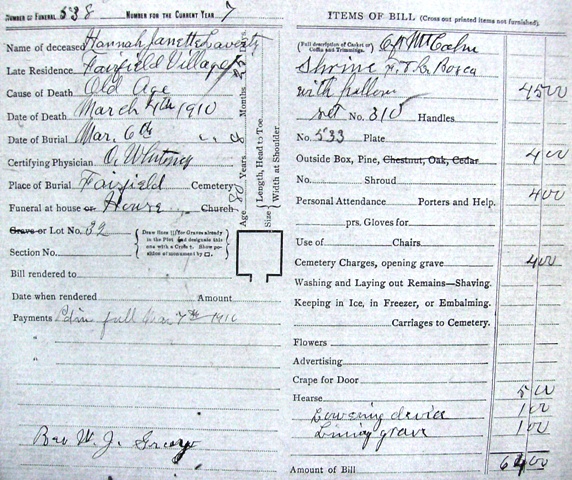 NUMBER OF FUNERAL 538 NUMBER FOR THE CURRENT YEAR 7
Name of deceased Hannah Janette
Late Residence Fairfield Village
Cause of Death Old Age
Date of Death March 4th 1910
Date of Burial Mar. 6th
Certifying Physician O. Whitney
Place of Burial Fairfield Cemetery
Funeral at house or House Church
Grave or Lot No. 32
{ Draw lines for Graves already in the Plot and designate this one with a Cross †. Show position of monument by □. }
Section No.
Bill rendered to
Date when rendered Amount
Payments Pd in full Mar 7th 1910
"
"
Rev W. J.
Age 80 Years Months Days.
Size { Length, Head to Toe
Width at Shoulder
ITEMS OF BILL (Cross out printed items not furnished).
(Full description of Casket or Coffin and Trimmings.)
Shrine
with pillow 45 00
set No. 310 Handles
No. 533 Plate
Outside Box, Pine, Chestnut, Oak, Cedar 4 00
No. Shroud
Personal Attendance Porters and Help. 4 00
prs. Gloves for
Use of Chairs.
Cemetery Charges, opening grave 4 00
Washing and Laying out Remains—Shaving.
Keeping in Ice, in Freezer, or Embalming.
Carriages to Cemetery.
Flowers
Advertising
Crape for Door
Hearse 5 00
Lowering device 1 00
Lining grave 1 00
Amount of Bill 64 00